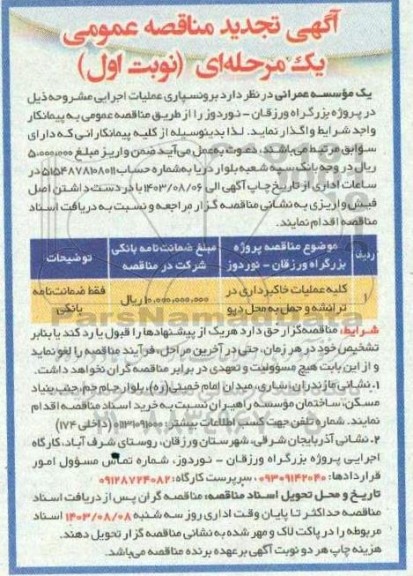 آگهی تجدید مناقصه عمومی
یک مرحله‌ای (نوبت اول)
یک مؤسسه عمرانی در نظر دارد برونسپاری عملیات اجرایی مشروحه ذیل
در پروژه بزرگراه ورزقان - نوردوز را از طریق مناقصه عمومی به پیمانکار
واجد شرایط واگذار نماید. لذا بدینوسیله از کلیه پیمانکارانی که دارای
سوابق مرتبط می‌باشند، دعوت به‌عمل می‌آید ضمن واریز مبلغ ۵،۰۰۰،۰۰۰
ریال در وجه بانک سپه شعبه بلوار دریا به‌شماره حساب ۵۱۵۴۸۷۸۱۰۸۰۱۱ در
ساعات اداری از تاریخ چاپ آگهی الی ۱۴۰۳/۰۸/۰۶ با در دست داشتن اصل
فیش واریزی به نشانی مناقصه گزار مراجعه و نسبت به دریافت اسناد
مناقصه اقدام نمایند.
ردیف
موضوع مناقصه پروژه بزرگراه ورزقان - نوردوز
مبلغ ضمانت‌نامه بانکی شرکت در مناقصه
توضیحات
۱
کلیه عملیات خاکبرداری در ترانشه و حمل به محل دپو
۱۰،۰۰۰،۰۰۰،۰۰۰ ریال
فقط ضمانت‌نامه بانکی
شرایط: مناقصه‌گزار حق دارد هر یک از پیشنهادها را قبول یا رد کند یا بنابر
تشخیص خود در هر زمان، حتی در آخرین مراحل، فرآیند مناقصه را لغو نماید
و از این بابت هیچ مسؤولیت و تعهدی در برابر مناقصه گران نخواهد داشت.
۱. نشانی مازندران: ساری، میدان امام خمینی(ره)، بلوار جام جم، جنب بنیاد
مسکن، ساختمان مؤسسه راهیران نسبت به خرید اسناد مناقصه اقدام
نمایند. شماره تلفن جهت کسب اطلاعات بیشتر: (داخلی ۱۷۴)
۲. نشانی آذربایجان شرقی: شهرستان ورزقان، روستای شرف آباد، کارگاه
اجرایی پروژه بزرگراه ورزقان - نوردوز، شماره تماس مسؤول امور
قراردادها: ۰۹۳۰۹۱۴۲۰۴۰؛ سرپرست کارگاه: ۰۹۱۲۸۷۲۴۰۸۲
تاریخ و محل تحویل اسناد مناقصه: مناقصه گران پس از دریافت اسناد
مناقصه حداکثر تا پایان وقت اداری روز سه شنبه ۱۴۰۳/۰۸/۰۸ اسناد
مربوطه را در پاکت لاک و مهر شده به نشانی مناقصه گزار تحویل دهند.
هزینه چاپ هر دو نوبت آگهی بر عهده برنده مناقصه می‌باشد.